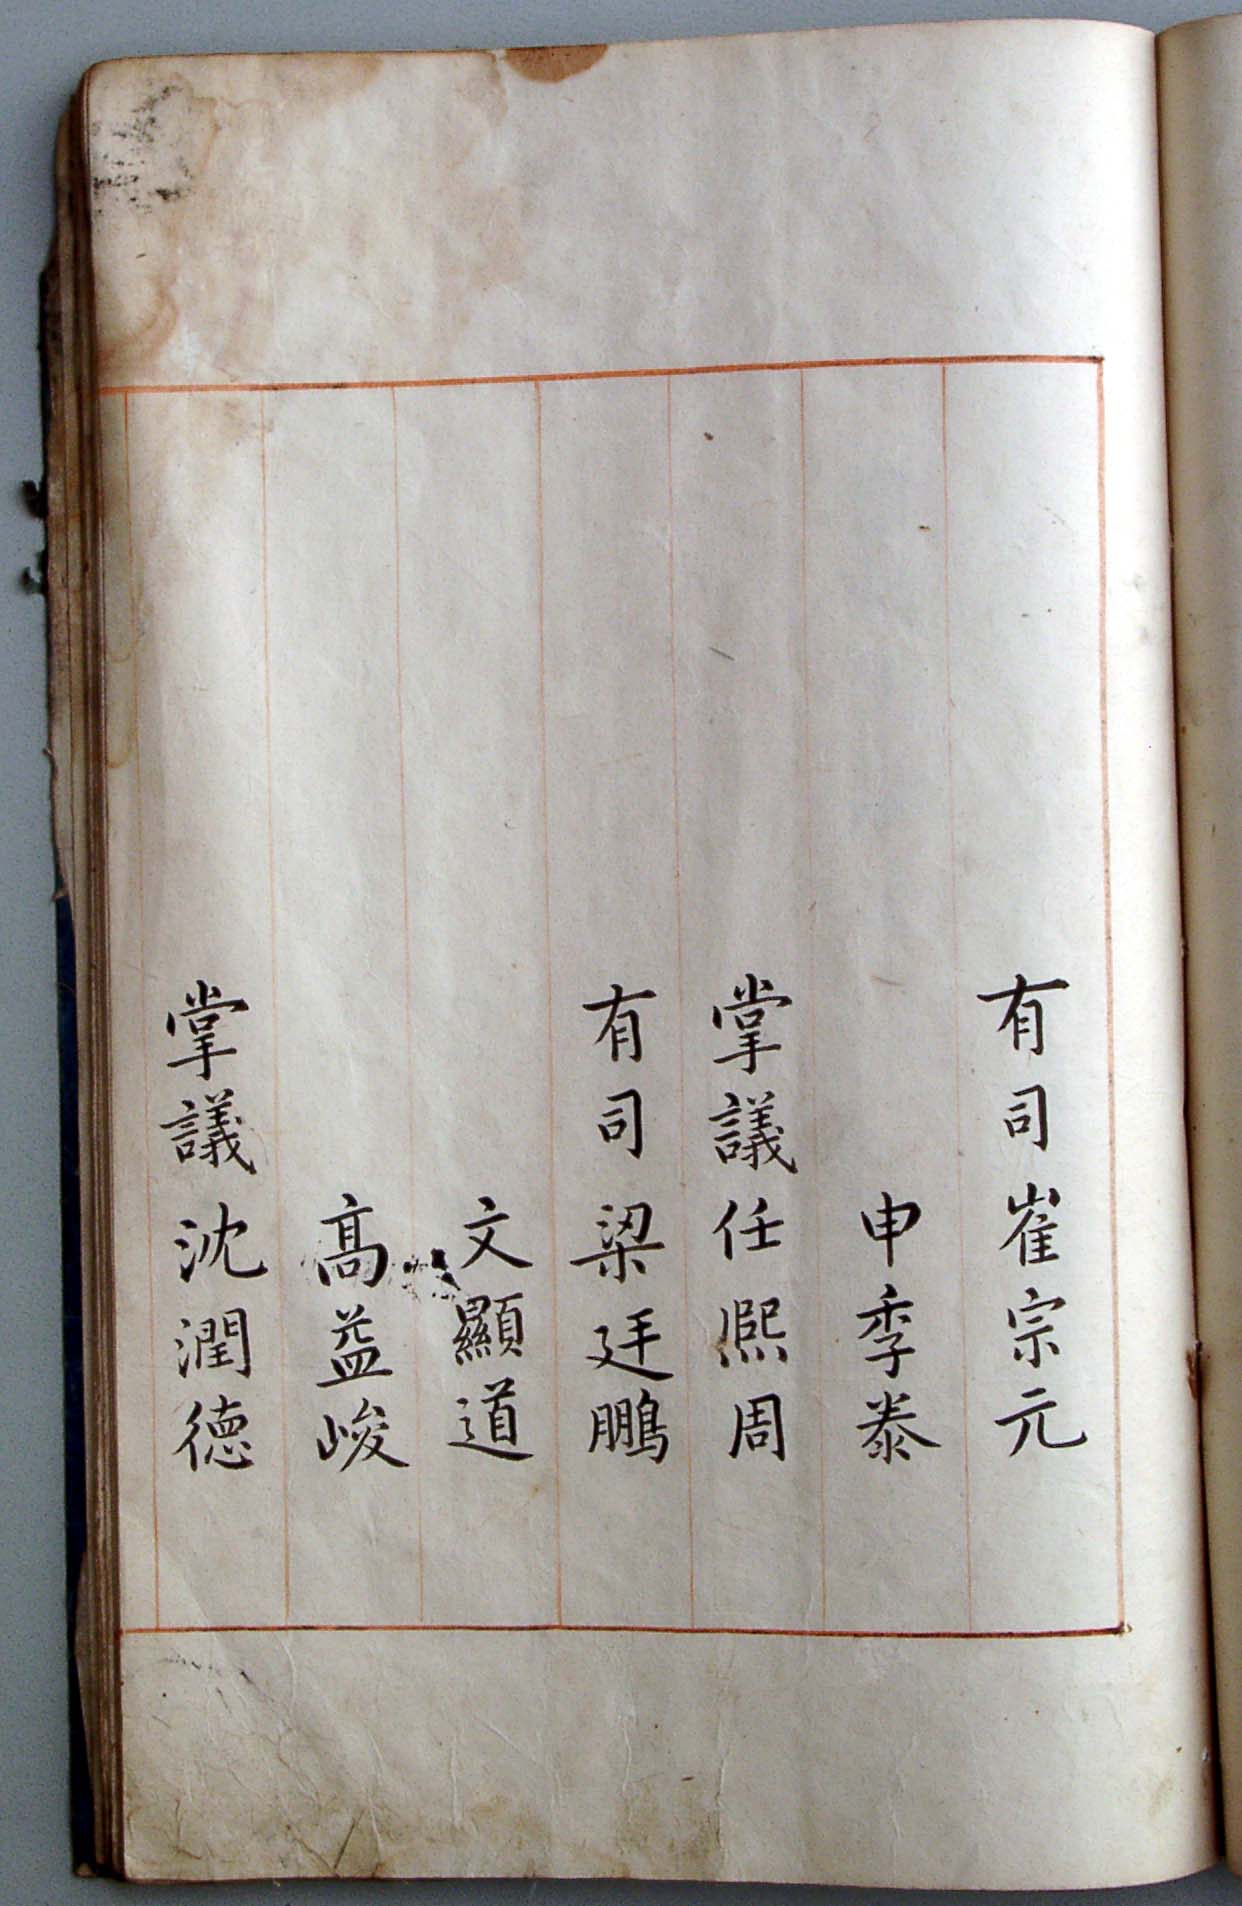 有司崔宗元
申季泰
掌議任熙周
有司梁廷鵬
文顯道
高益峻
掌議沈潤德